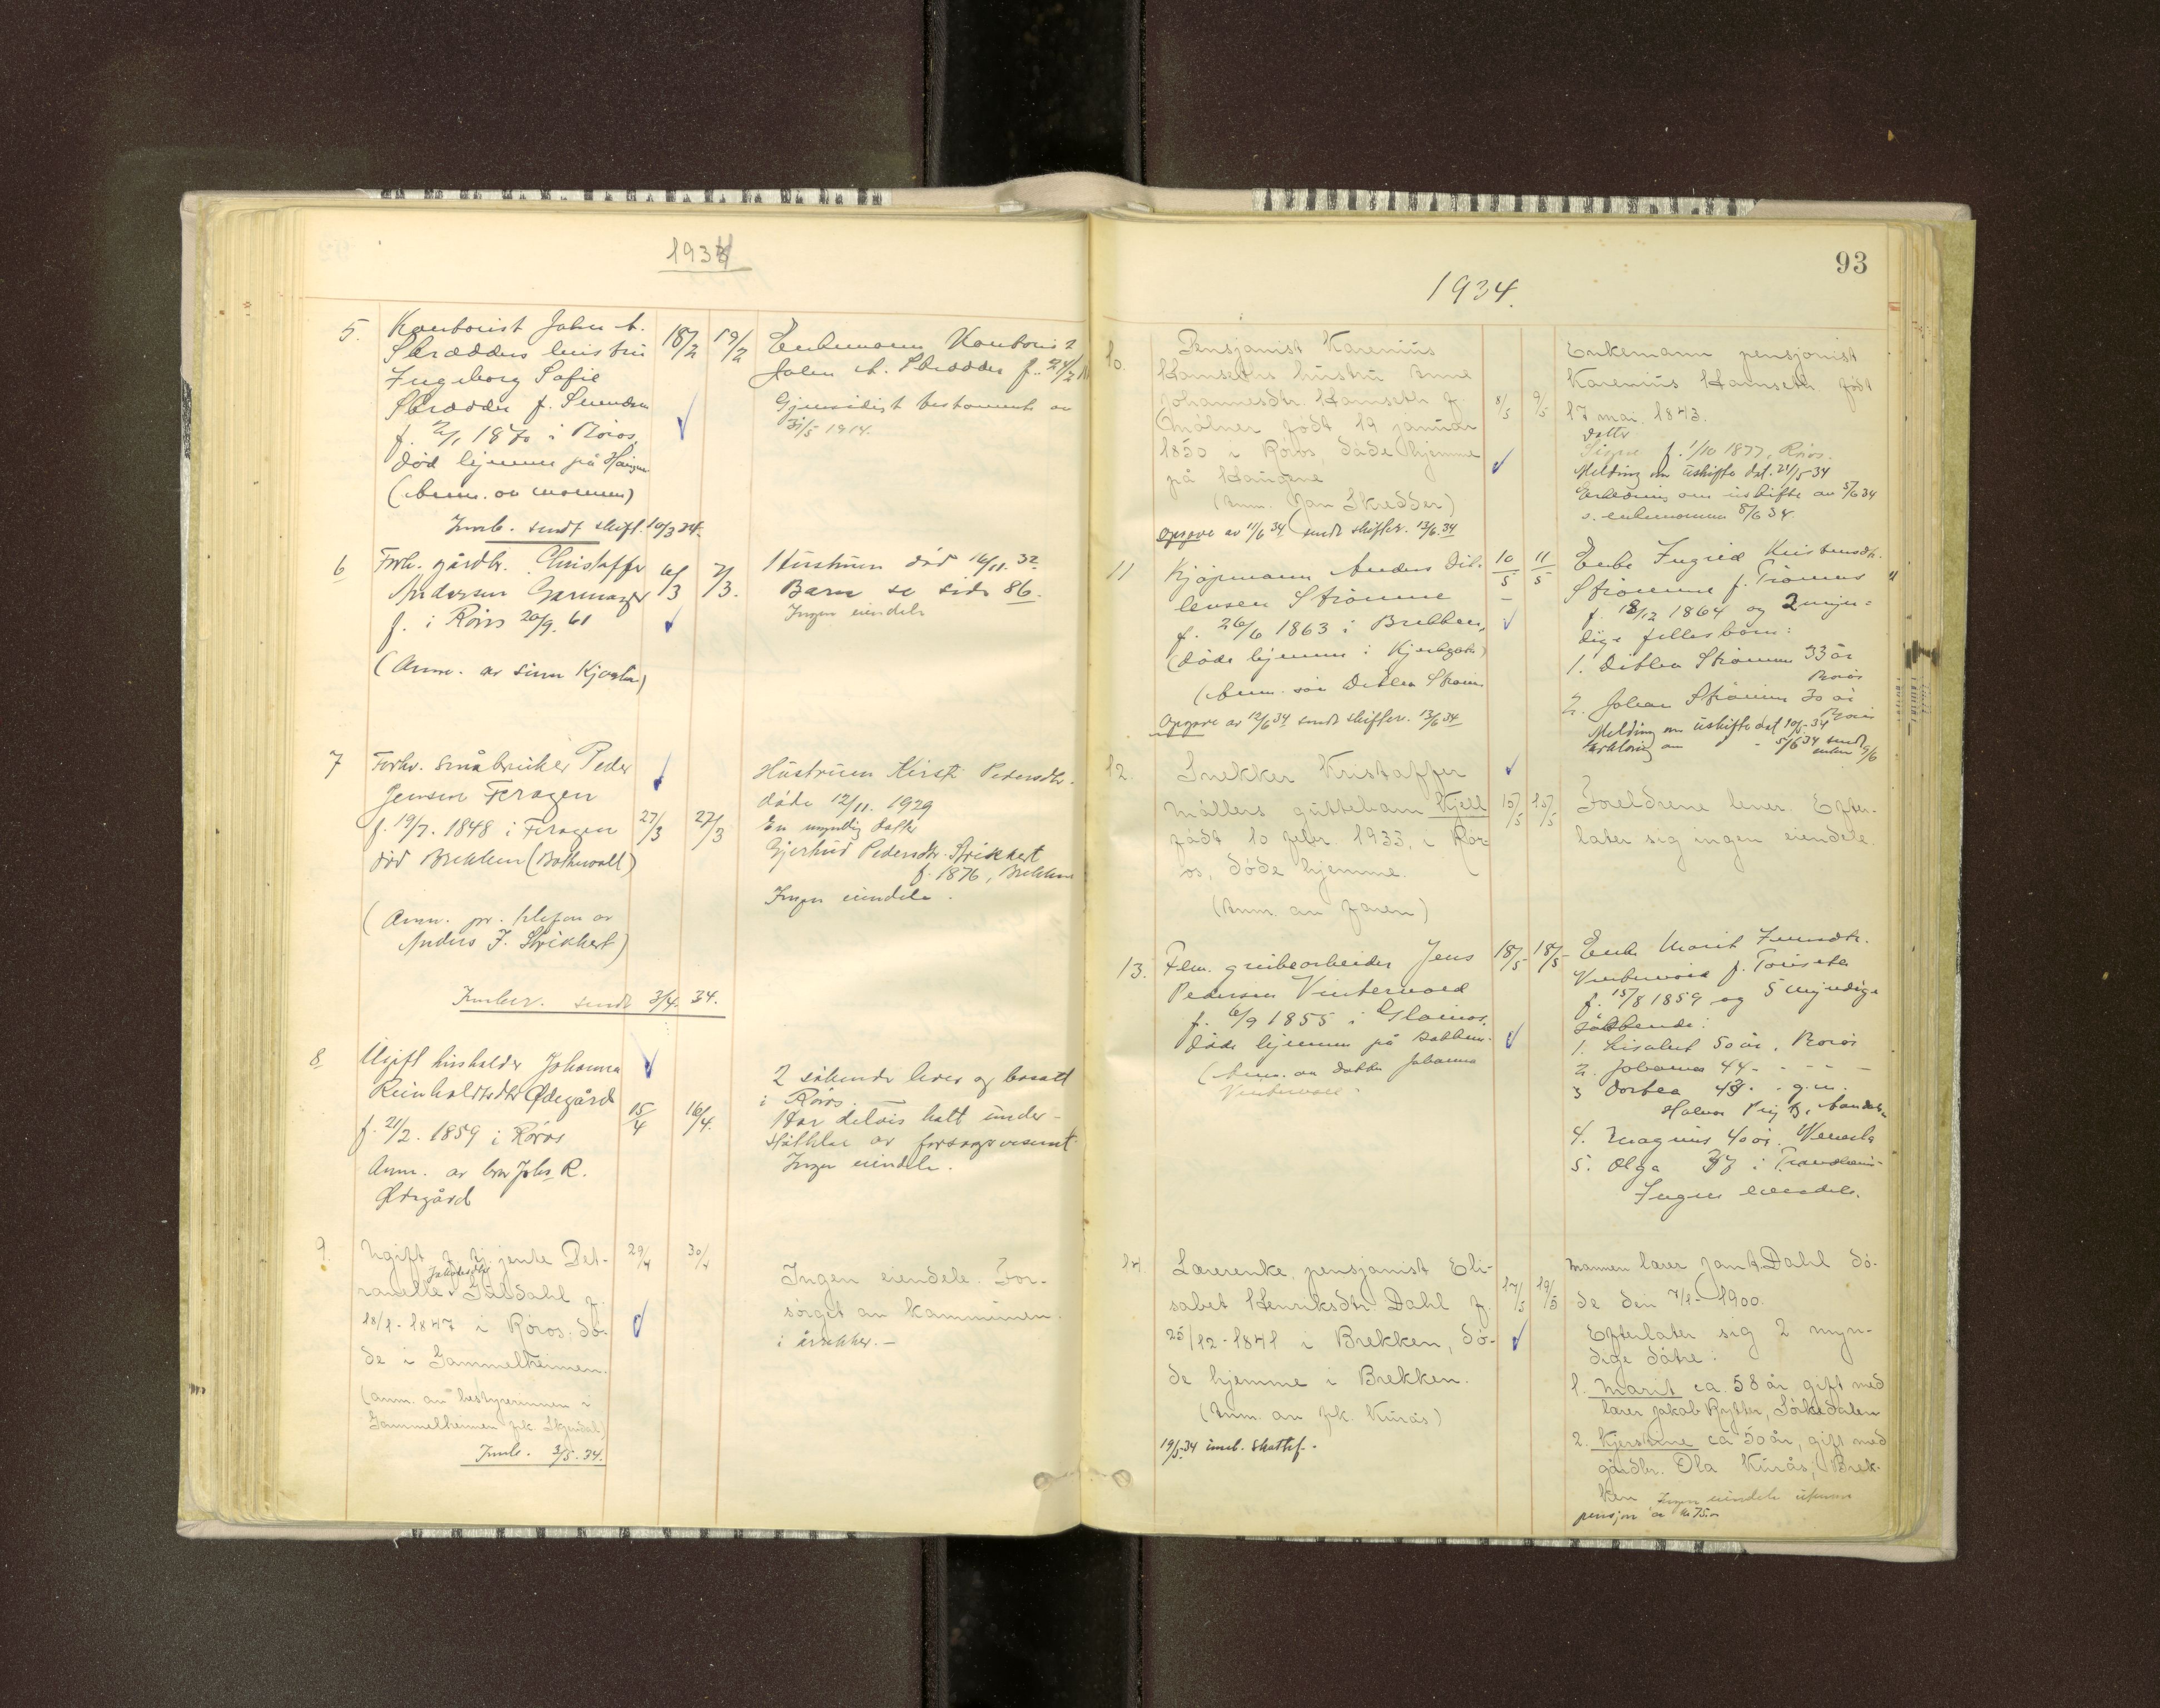 1934
5.
Kontorist John A.
Skrædders hustru
Ingeborg Sofie
Skrædder f.
f. 1870 i Røros,
død hjemme på
(Anm. av mannen)
Innb. sendt skift. 10/3 34.
18/2
19/2
Enkemann Kontorist
John A. Skrædder f.
Gjensidigt testamente av
31/5 1914.
6
Forh. gårdbr. Christoffer
Andersen Garmager
f. i Røros 20/9. 61
(Anm. av sønn)
6/3
7/3.
Hustruen død 16/11. 32.
Barn se side 86.
Ingen eiendele
7
Forhv. småbruker Peder
Jensen Feragen
f. 19/7. 1848 i Feragen
død Brekken (Bothnvoll)
(Anm. pr. telefon av
Anders J. Strickert)
Innber. sendt 3/4. 34.
27/3
27/3
Hustruen Kirsti Pedersdtr.
døde 12/11. 1929
En myndig datter
Gjertrud Pedersdtr. Strickert
f. 1876, Brekken
Ingen eiendele.
8
Ugift husholder Johanna
Reinholtsdtr Ødegård
f. 21/2. 1859 i Røros
Anm. av bror Johs R.
Ødegård
15/4
16/4.
2 søskende lever og bosatt
i Røros.
Har delvis hatt under-
støttelse av forsorgsvesenet.
Ingen eiendele.
9.
Ugift f. hj. jente Pet-
ronelle Jakobsdtr Galdahl f.
18/1-1847 i Røros. Dø-
de i Gammelheimen.
(anm. av bestyrerinnen i
Gammelheimen frk. Skjøndal)
Innb. 3/5. 34.
29/4
30/4
Ingen eiendele. For-
sørget av kommunen.
i årrekker.-
93
1934.
10.
Pensjonist Karenius
Hamseths hustru Anne
Johannesdtr. Hamseth f.
Mølner født 19 januar
1850 i Røros, døde hjemme
på Haugene
(Anm. Jon Skredder)
Opgave av 11/6 34 sendt skifter. 13/6. 34
8/5
9/5
Enkemann pensjonist
Karenius Hamseth født
17 mai 1843.
Datter
Signe f. 1/10 1877, Røros.
Melding om uskifte dat. 21/5-34
Erklæring om uskifte av 5/6 34
s. enkemannen 8/6 34.
11
Kjøpmann Anders Dit-
levsen Strømme
f. 26/6 1863 i Brekken,
(døde hjemme i Kjerkgata)
(Anm. søn Ditlev Strøm
Opgave av 12/6 34 sendt skifter. 13/6 34
10/5
11/5
Enke Ingrid Kristensdtr.
Strømme f. Trønnes
f. 18/12 1864 og 2 myn-
dige fellesbarn:
1. Ditlev Strømme 33 år
Røros
2. Johan Strømme 30 år
Røros
Melding om uskifte dat 10/5-34
Erklæring om - 5/6 34 sendt
enken 9/6
12.
Snekker Kristoffer
Møllers guttebarn Kjell
født 10 febr. 1933, i Rør-
os, døde hjemme.
(Anm. av faren)
15/5
15/5
Foreldrene lever. Efter-
later sig ingen eiendele.
13.
Flm. grubearbeider Jens
Pedersen Vintervold
f. 6/9 1855 i Glåmos.
døde hjemme på
(Anm. av datter Johanna
Vintervold.
18/5
18/5
Enke Marit Jensdtr.
Vintervold f. Tørseth
f. 15/8 1859 og 5 myndige
1. Lisabet 50 år. Røros
2. Johanna 44 - - - -
3 Dortea 43. . g. m.
4. Magnus 40 år.
5. Olga 37 i
Ingen eiendele.
14.
Lærerenke, pensjonist Eli-
sabet Henriksdtr. Dahl f.
25/12-1841 i Brekken, dø-
de hjemme i Brekken.
(Anm. av frk. Kurås)
19/5.34 innb. skattef.
17/5
19/5
Mannen lærer Jon A. Dahl dø-
de den 7/1-1900.
Efterlater sig 2 myn-
dige døtre:
1. Marit ca. 58 år, gift med
lærer Jakob Rytter, Sørkedalen
2. Kjerstine ca 50 år, gift med
gårdbr. Ola Kurås, Brek-
ken. Ingen eiendele utenom
pensjon